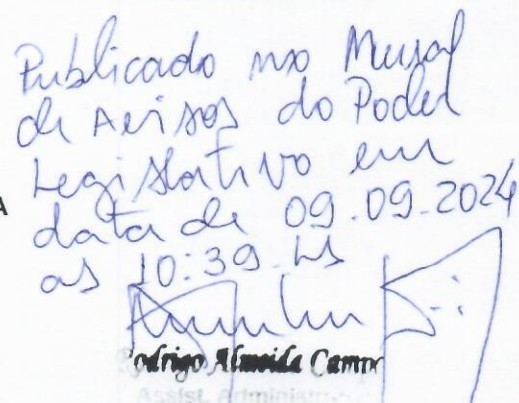 Publicado no Mural
de Avisos do Poder
Legislativo em
A
data de 09.09.2024
as 10:39 hs
Rodrigo Almeida Campo
Assist. Administra